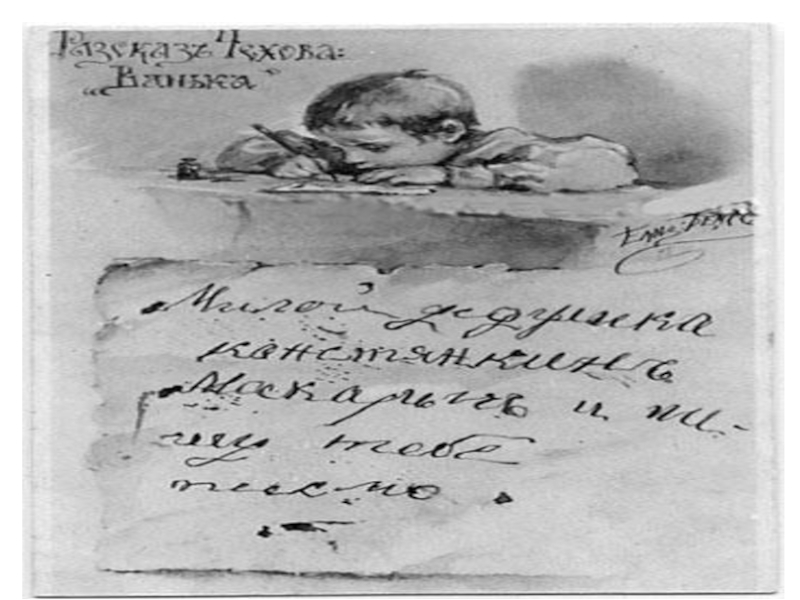 Разсказъ Чехова:
„Ванька“
Елиз: Бемъ
Милой дедушка
канстянкинъ
Макарычь и пи-
шу тебѣ
письмо .